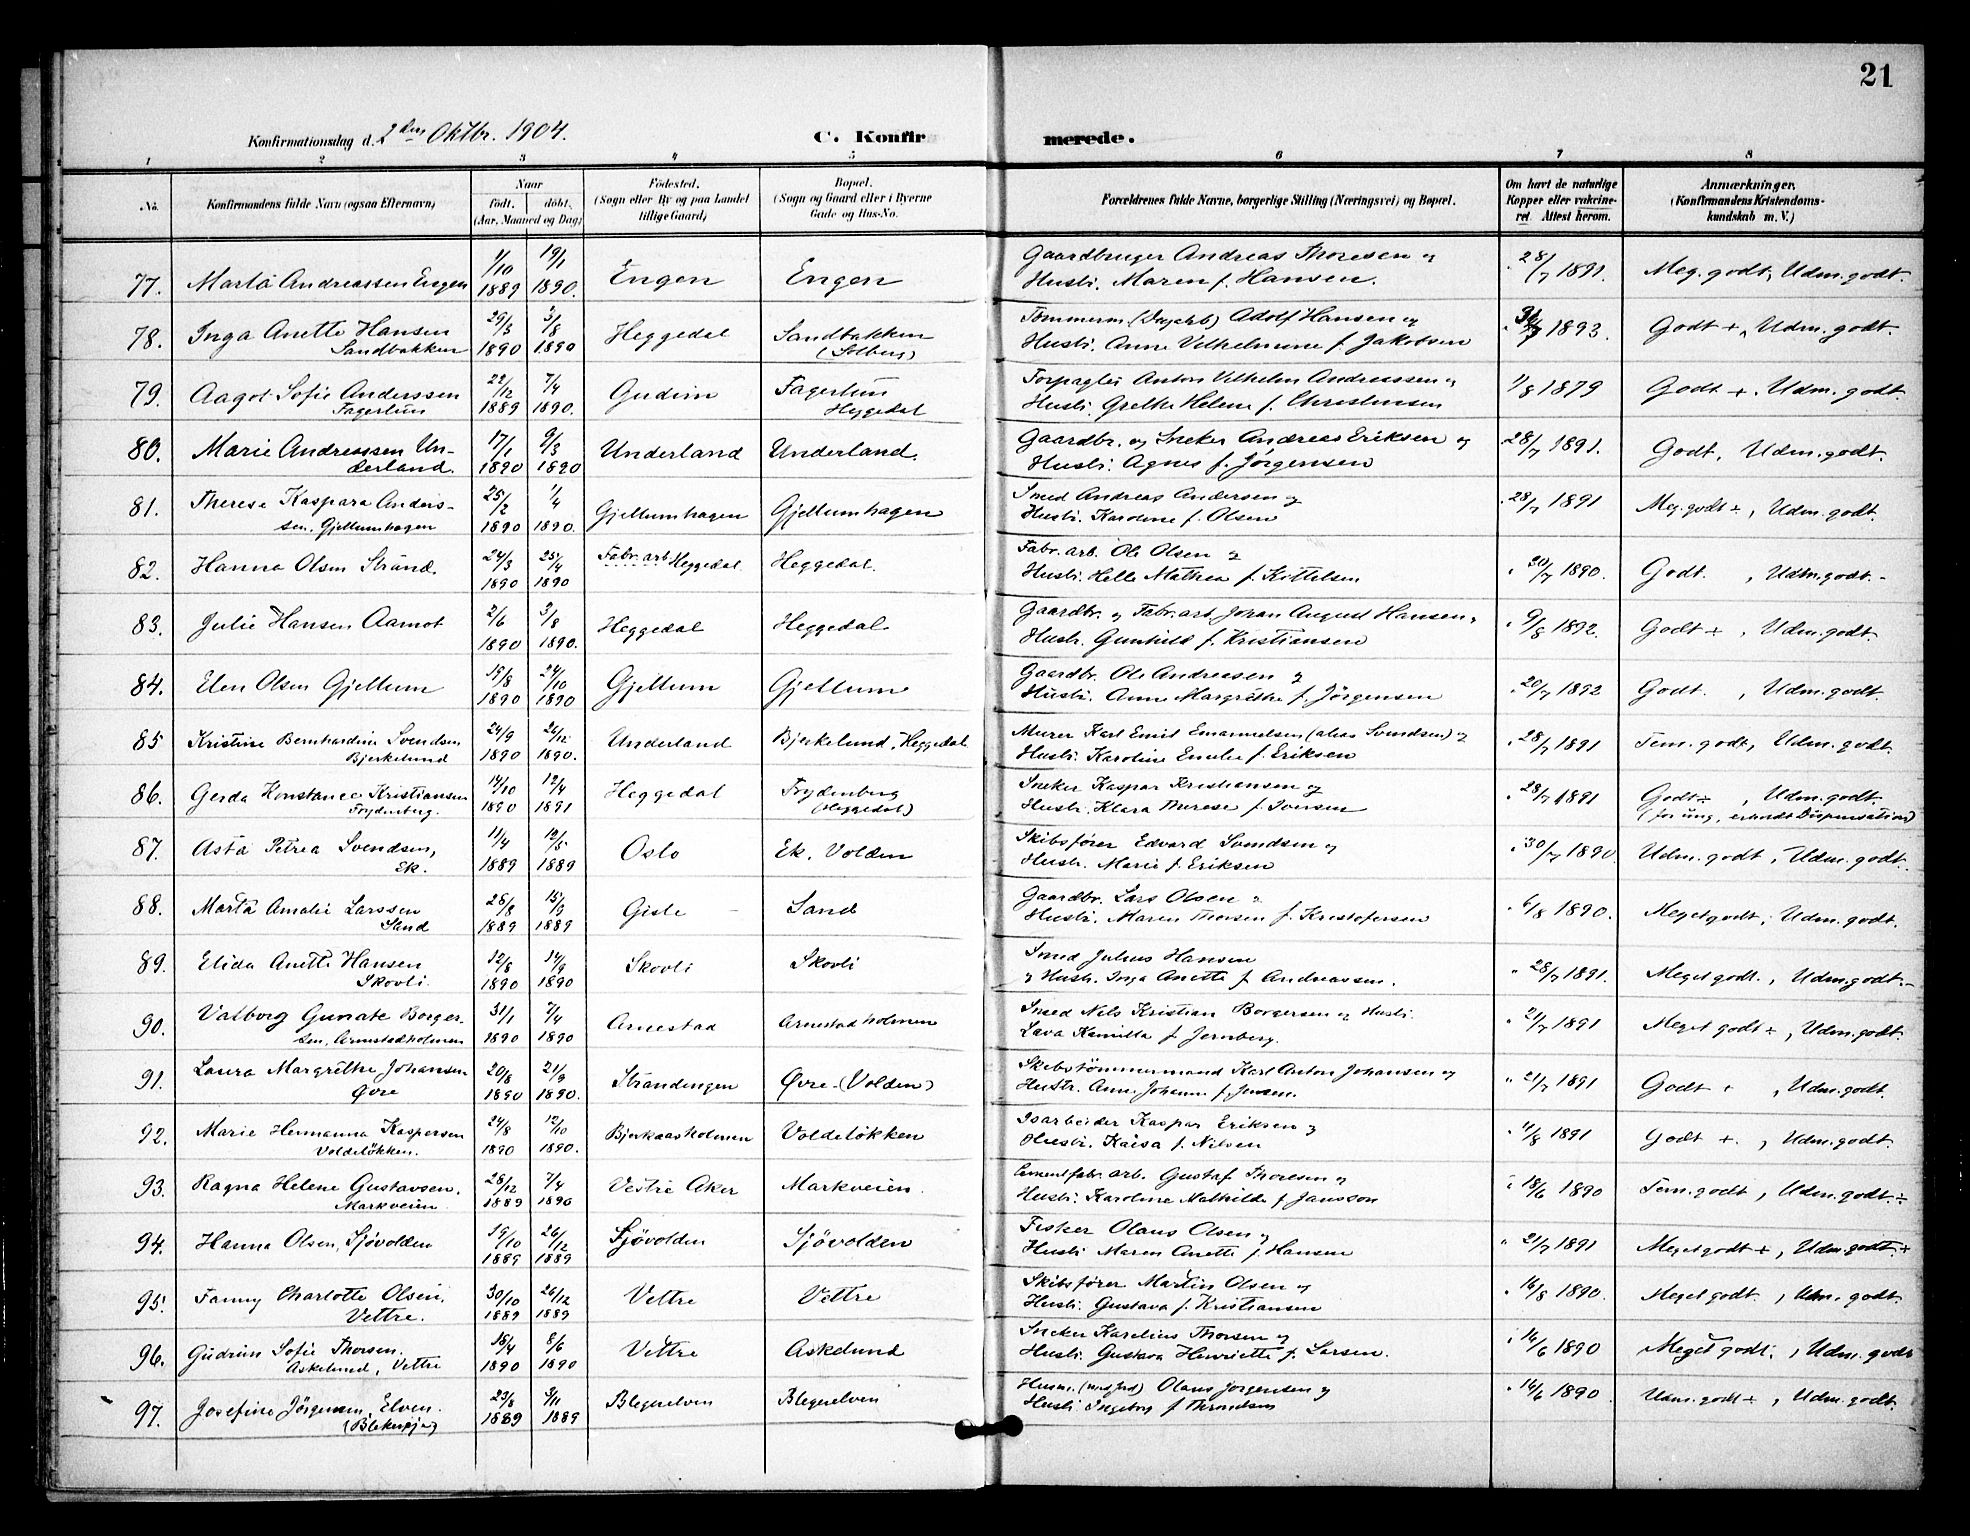 21
Konfirmationsdag d. 2den Oktbr. 1904.
C. Konfirmerede.
1 2 3 4 5 6 7 8
No.
Konfirmandens fulde Navn (ogsaa Efternavn)
Naar
født. døbt.
(Aar, Maaned og Dag)
Fødested.
(Sogn eller By og paa Landet
tillige Gaard)
Bopæl.
(Sogn og Gaard eller i Byerne
Gade og Hus-No.
Forældrenes fulde Navne, borgerlige Stilling (Næringsvei) og Bopæl.
Om havt de naturlige
Kopper eller vakcine-
ret Attest herom.
Anmærkninger.
(Konfirmandens Kristendoms-
kundskab m. V.)
77. Marta Andreassen Engen 1/10 1889 19/1 1890. Engen Engen Gaardbruger Andreas Thoresen og
Hustr. Maren f. Hansen. 28/7 1891. Meg. godt, Udm. godt.
78. Inga Anette Hansen 29/3 1890 3/8 1890 Heggedal Sandbakken Tømmerm. (Dagarb) Adolf Hansen og
Sandbakken (Solberg) Hustr. Anne Vilhelmine f. Jakobsen 1893. Godt +, Udm. godt.
79. Aagot Sofie Anderssen 22/12 1889 7/4 1890. Gudim Fagerlun Forpagter Anton Vilhelm Andreassen og
Fagerlun Heggedal Hustr. Grethe Helene f. Christensen 1/8 1879 Godt +. Udm. godt.
80. Marie Andreassen Un- 17/1 1890 9/3 1890 Underland Underland. Gaardbr. og Sneker Andreas Eriksen og
derland. Hustr. Agnes f. Jørgensen 28/7 1891. Godt, Udm. godt.
81. Therese Kaspara Anders- 25/2 1890 1/4 1890. Gjellumhagen Gjellumhagen Smed Andreas Andersen og
sen, Gjellumhagen Hustr. Karoline f. Olsen 28/7 1891 Meg. godt ÷, Udm. godt.
82. Hanna Olsen Strand. 24/3 1890 25/4 1890 Fabr. arb. Heggedal. Heggedal. Fabr. arb. Ole Olsen og
Hustr. Helle Mathea f. Kittelsen 30/7 1890. Godt. , Udm. godt.
83. Julie Hansen Aamot 2/6 1890 3/8 1890. Heggedal Heggedal. Gaardbr. og Fabr. arb. Johan August Hansen,
Hustr. Gunhild f. Kristiansen 9/8 1892. Godt ÷, Udm. godt.
84. Elen Olsen Gjellum 19/8 1890 24/10 1890 Gjellum Gjellum Gaardbr. Ole Andreasen og
Hustr. Anne Margrethe f. Jørgensen 20/7 1892 Godt. , Udm. godt.
85 Kristine Bernhardine Svendsen 24/9 1890 26/12 1890. Underland Bjerkelund, Heggedal Murer Karl Emil Emanuelsen (alias Svendsen) og
Bjerkelund Hustr. Karoline Emelie f. Eriksen 28/7 1891 Tem. godt, Udm. godt.
86. Gerda Konstance Kristiansen 14/10 1890 12/4 1891 Heggedal Frydenberg Sneker Kaspar Kristiansen og
Frydenberg. (Heggedal) Hustr. Klara Therese f. Iversen 28/7 1891 Godt ÷, Udm. godt.
(for ung, erholdt Dispensation)
87. Asta Petrea Svendsen, 11/4 1889 12/5 1889 Oslo Ek. Volden Skibsfører Edvard Svendsen og
Ek. Hustr. Marie f. Eriksen 30/7 1890. Udm. godt, Udm. godt.
88. Marta Amalie Larssen 28/8 1889 15/9 1889 Gisle Sand Gaardbr. Lars Olsen og
Sand Hustr. Maren Thorsen f. Kristofersen 6/8 1890. Meget godt, Udm. godt.
89. Elida Anette Hansen 12/8 1890 14/9 1890 Skovli Skovli Smed Julius Hansen
Skovli. og Hustr. Inga Anette f. Andreassen. 28/7 1891. Meget godt. , Udm. godt.
90. Valborg Gunate Borger- 31/1 1890 7/4 1890 Arnestad Arnestadholmen Smed Nils Kristian Borgersen og Hustr.
sen, Arnestadholmen Lava Kamilla f. Jernberg. 21/7 1891 Meget godt ÷, Udm. godt.
91. Laura Margrethe Johansen 20/8 1890 21/9 1890. Strandengen Øvre (Volden) Skibstømmermand Karl Anton Johansen og
Øvre Hustr. Anne Johanne f. Jensen. 21/7 1891 Godt + , Udm. godt.
92. Marie Hermanna Kaspersen 24/8 1890 12/10 1890. Bjerkaasholmen Voldeløkken Isarbeider Kaspar Eriksen og
Voldeløkken. Hustr. Kaisa f. Nilsen 11/8 1891 Godt +. , Udm. godt.
93. Ragna Helene Gustavsen. 28/12 1889 7/4 1890 Vestre Aker Markveien. Cementfabr. arb. Gustaf Thoresen og
Markveien Hustr. Karoline Mathilde f. Jansson 18/6 1890 Tem. godt, Udm. godt. ÷
94. Hanna Olsen, Sjøvolden 19/10 1889 26/12 1889 Sjøvolden Sjøvolden Fisker Olaus Olsen og
Hustr. Maren Anette f. Hansen 21/7 1891 Meget godt +, Udm. godt. +
95. Fanny Charlotte Olsen. 30/10 1889 26/12 1889 Vettre Vettre Skibsfører Martin Olsen og
Vettre. Hustr. Gustava f. Kristiansen 16/8 1890. Meget godt. , Udm. godt.
96. Gudrun Sofie Thorsen. 18/4 1890 8/6 1890 Vettre Askelund Sneker Karelius Thorsen og
Askelund, Vettre Hustr. Gustava Henriette f. Larsen. 14/6 1890 Meget godt. , Udm. godt
97. Josefine Jørgensen, Elven. 23/8 1889 3/11 1889 Blegerelven Blegerelven Husm. Olaus Jørgensen og
Hustr. Ingeborg f. Throndsen 14/6 1890 Udm. godt ÷, Udm. godt.